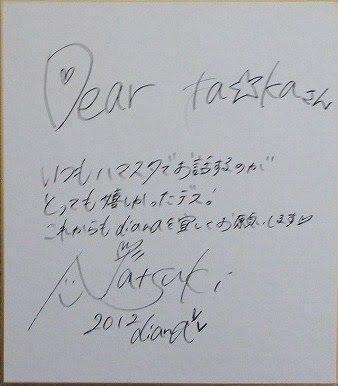 Dear ta☆kaさん
いつもハマスタでお話するのが
とっても嬉しかったデス!
これからもdianaを宜しくお願いします♡
Natsuki
2012 diana